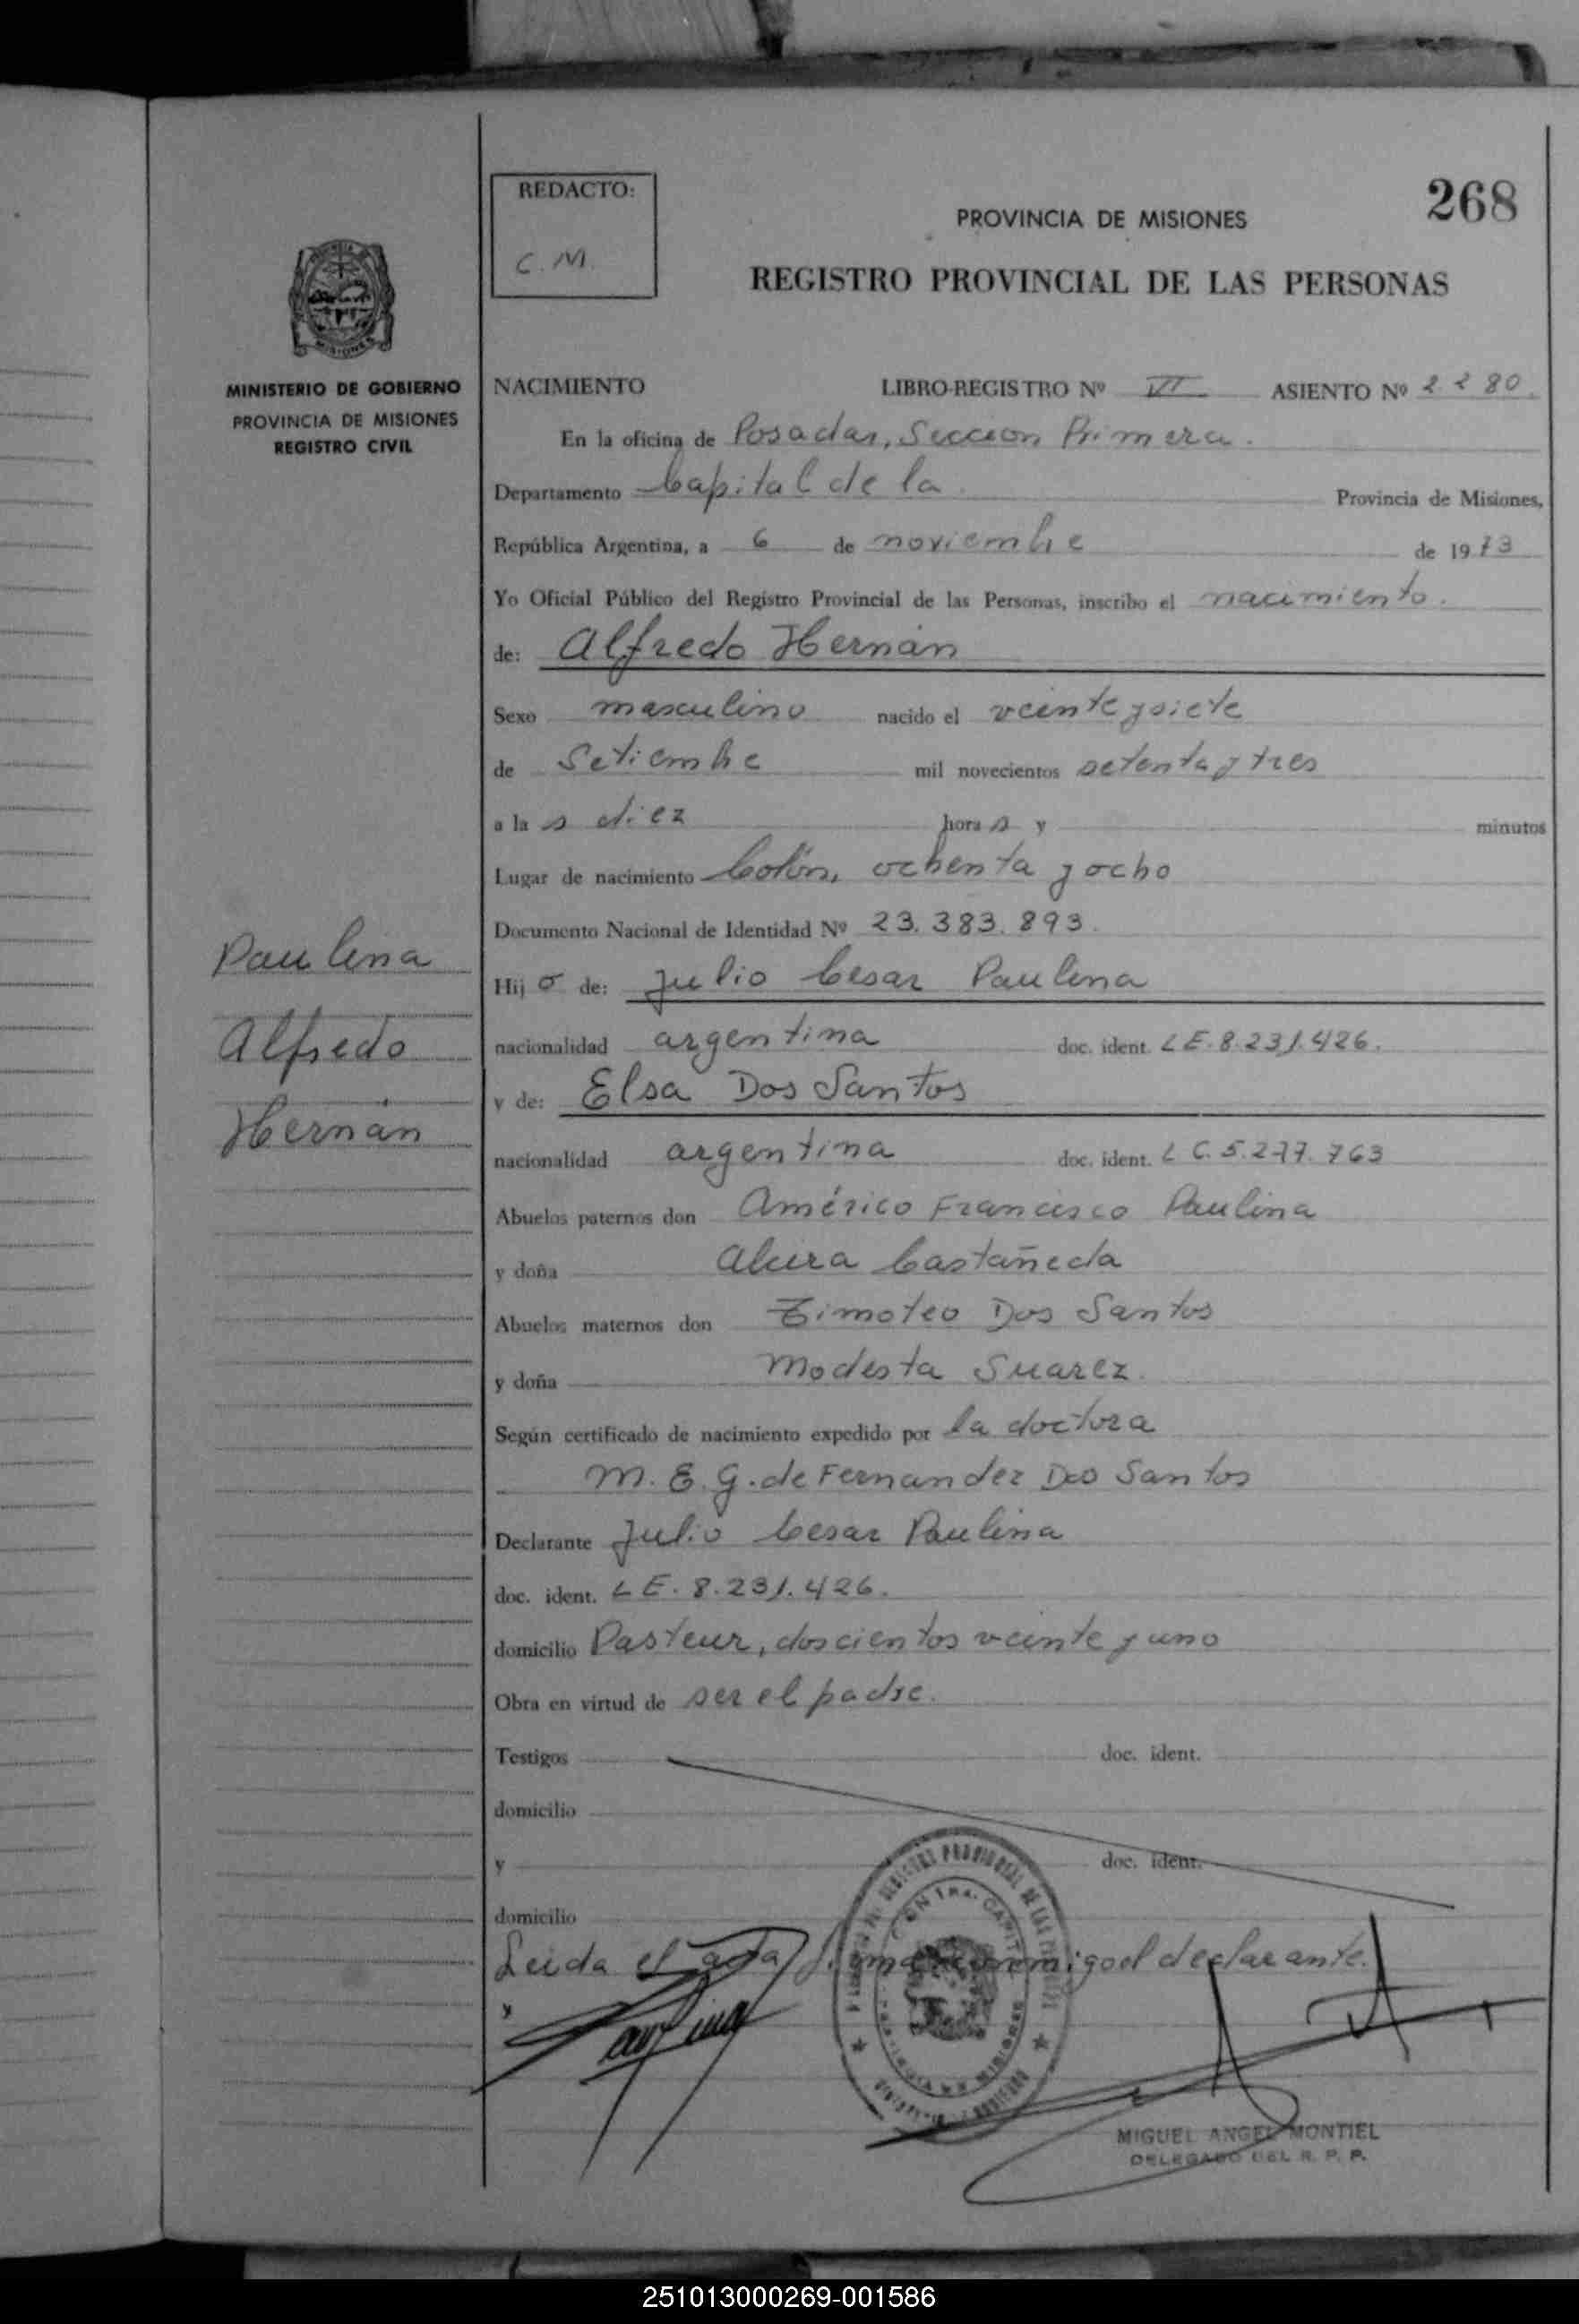 268
REDACTO:
C. M.
PROVINCIA DE MISIONES
REGISTRO PROVINCIAL DE LAS PERSONAS
MISIONES
MINISTERIO DE GOBIERNO
PROVINCIA DE MISIONES
REGISTRO CIVIL
NACIMIENTO LIBRO-REGISTRO Nº VI ASIENTO Nº 2280
En la oficina de Posadas, Seccion Primera.
Departamento Capital de la Provincia de Misiones,
República Argentina, a 6 de noviembre de 1973
Yo Oficial Público del Registro Provincial de las Personas, inscribo el nacimiento.
de: Alfredo Hernán
Sexo masculino nacido el veinte y siete
de Setiembre mil novecientos setenta y tres
a las diez horas y minutos
Lugar de nacimiento Colón, ochenta y ocho
Documento Nacional de Identidad Nº 23.383.893.
Paulina
Alfredo
Hernán
Hijo de: Julio Cesar Paulina
nacionalidad argentina doc. ident. LE. 8.231.426.
y de: Elsa Dos Santos
nacionalidad argentina doc. ident. L C. 5.277.763
Abuelos paternos don Américo Francisco Paulina
y doña Alcira Castañeda
Abuelos maternos don Timoteo Dos Santos
y doña Modesta Suarez.
Según certificado de nacimiento expedido por la doctora
M. E. G. de Fernandez Dos Santos
Declarante Julio Cesar Paulina
doc. ident. LE. 8.231.426.
domicilio Pasteur, doscientos veinte y uno
Obra en virtud de ser el padre.
Testigos doc. ident.
domicilio
y doc. ident.
domicilio
Leida el acta firma conmigo el declarante.
Paulina
MIGUEL ANGEL MONTIEL
DELEGADO DEL R. P. P.
251013000269-001586